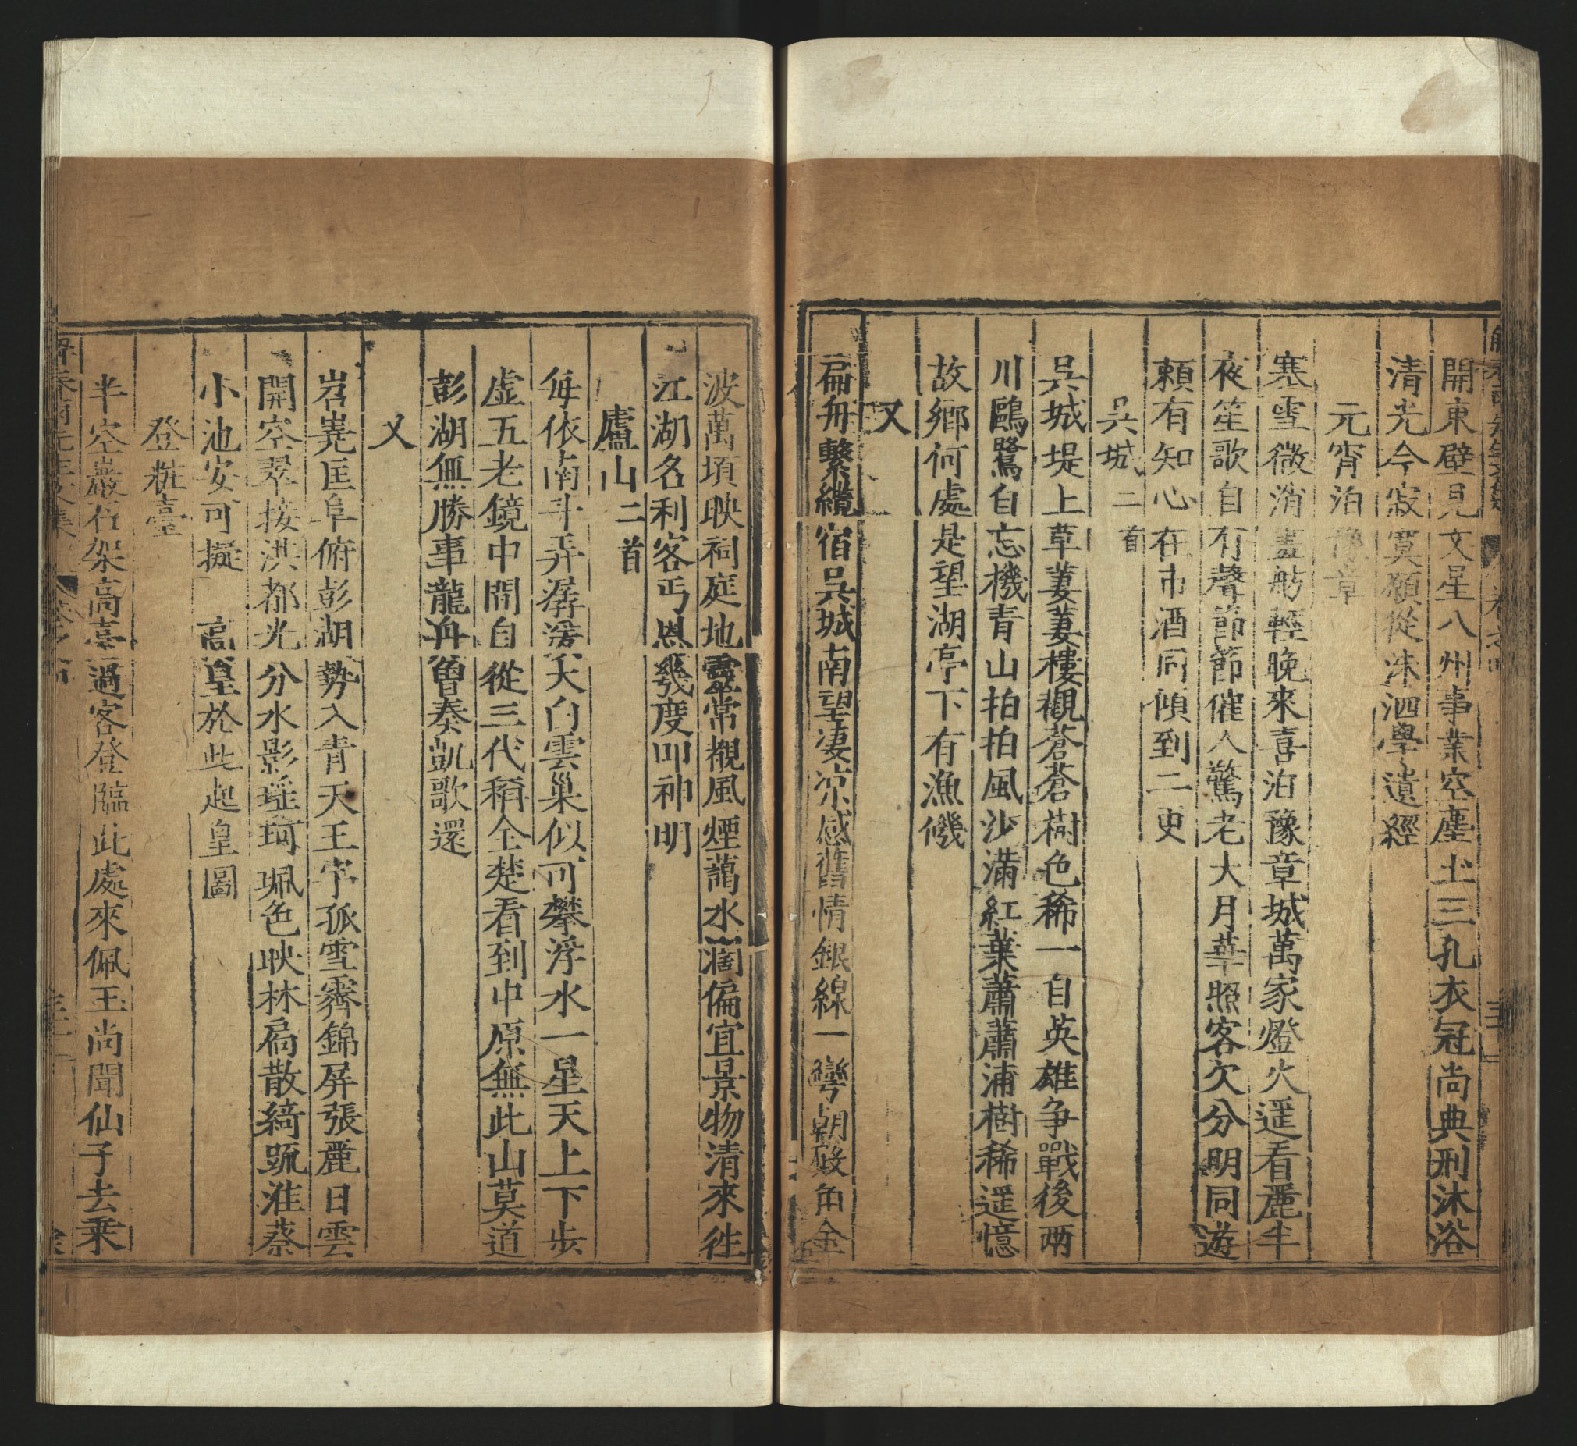 開東壁見文星八州事業空塵土三孔衣冠尚典刑沐浴
清光今寂寞願從洙泗學遺經
元宵泊豫章
寒雪微消畫舫輕晚來喜泊豫章城萬家燈火遥看麗半
夜笙歌自有聲節節催人驚老大月華照客欠分明同遊
頼有知心在市酒同傾到二更
吳城二首
吳城堤上草萋萋樓觀蒼蒼樹色稀一自英雄争戰後兩
川鷗鷺自忘機青山拍拍風沙滿紅葉蕭蕭浦樹稀遥憶
故鄉何處是望湖亭下有漁磯
又
扁舟繫纜宿吳城南望凄凉感舊情銀線一彎胡殿角金
波萬頃映祠庭地靈常襯風煙藹水澗偏宜景物清來往
江湖名利客丐恩幾度叩神明
廬山二首
每依南斗弄潺湲天白雲巢似可攀浮水一星天上下步
虚五老鏡中間自從三代稱全楚看到中原無此山莫道
彭湖無勝事龍舟曽奏凱歌還
又
岧嶤匡阜俯彭湖勢入青天王字孤雪霽錦屏張麗日雲
開空翠接洪都光分水影瑶珂珮色映林扃散綺䟽淮蔡
小池安可擬高皇於此起皇圖
登粧臺
半空巖石架高臺過客登臨此處來佩玉尚聞仙子去乘